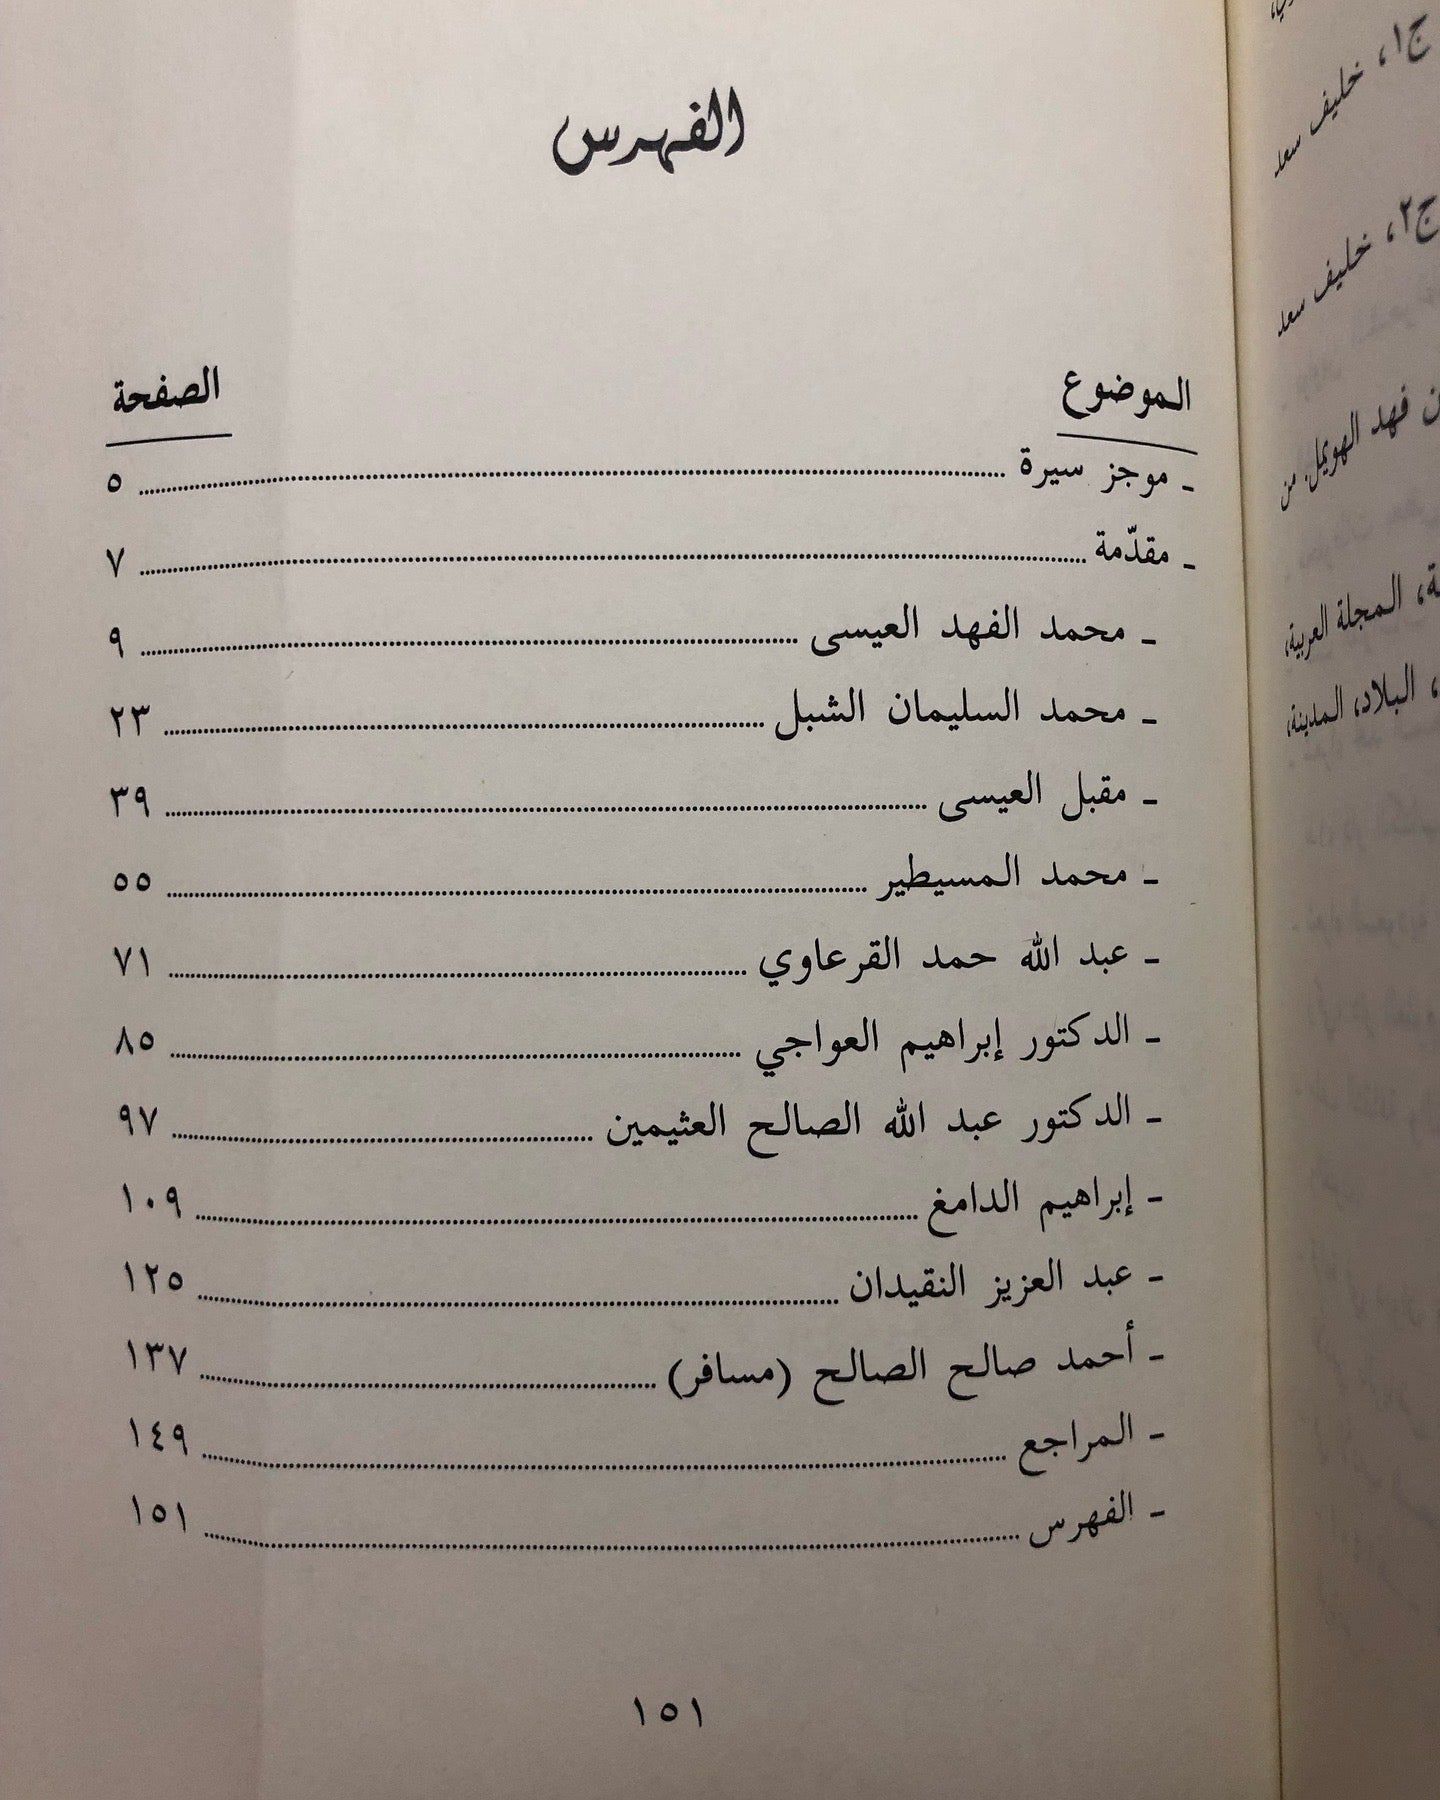 ج١، خليف سعد
ج٢، خليف سعد
فهد الهويمل. من
المجلة العربية،
البلاد، المدينة،
الفهرس
الموضوع الصفحة
- موجز سيرة ........ ٥
- مقدّمة ........ ٧
- محمد الفهد العيسى ........ ٩
- محمد السليمان الشبل ........ ٢٣
- مقبل العيسى ........ ٣٩
- محمد المسيطير ........ ٥٥
- عبد الله حمد القرعاوي ........ ٧١
- الدكتور إبراهيم العواجي ........ ٨٥
- الدكتور عبد الله الصالح العثيمين ........ ٩٧
- إبراهيم الدامغ ........ ١٠٩
- عبد العزيز النقيدان ........ ١٢٥
- أحمد صالح الصالح (مسافر) ........ ١٣٧
- المراجع ........ ١٤٩
- الفهرس ........ ١٥١
١٥١